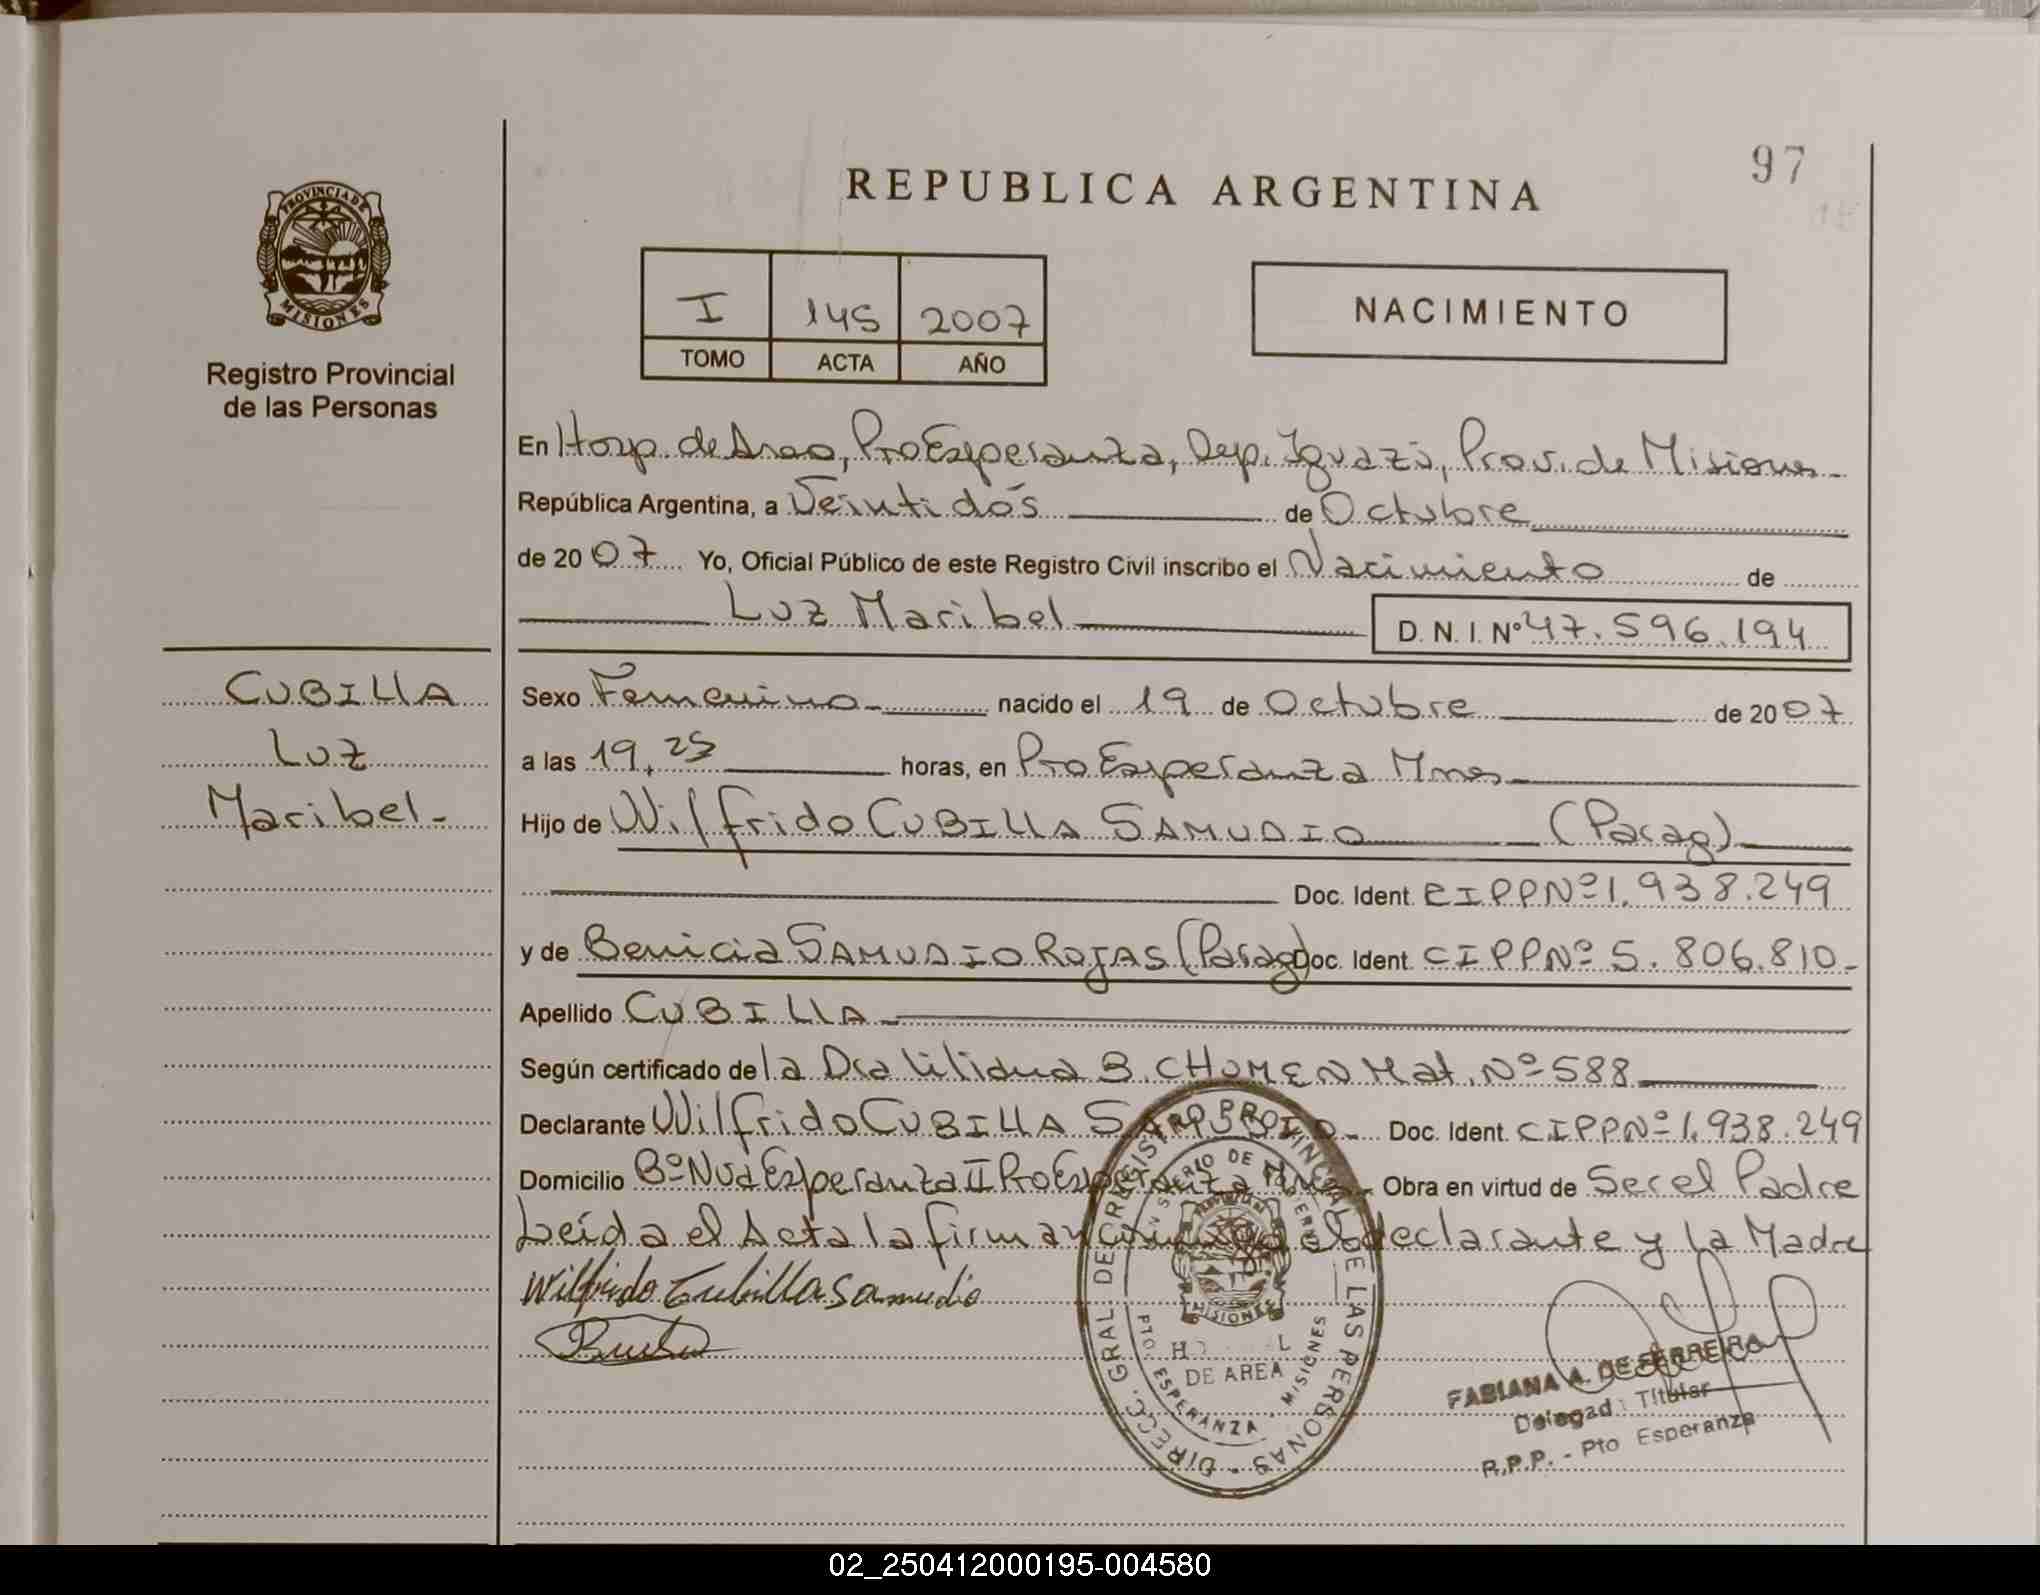 97
REPUBLICA ARGENTINA
PROVINCIA DE
MISIONES
Registro Provincial
de las Personas
I 145 2007
TOMO ACTA AÑO
NACIMIENTO
En Hosp. de Area, Pto Esperanza, Dep. Iguazú, Prov. de Misiones
República Argentina, a Veintidós de Octubre
de 2007 Yo, Oficial Público de este Registro Civil inscribo el Nacimiento de
Luz Maribel D.N.I. Nº 47.596.194
CUBILLA
Luz
Maribel-
Sexo Femenino nacido el 19 de Octubre de 2007
a las 19,25 horas, en Pto Esperanza Mnes
Hijo de Wilfrido CUBILLA SAMUDIO (Parag)
Doc. Ident. CIPPNº 1.938.249
y de Benicia SAMUDIO ROJAS (Parag) Doc. Ident. CIPPNº 5.806.810-
Apellido CUBILLA
Según certificado de la Dra Liliana B. CHOMEN Mat. Nº 588
Declarante Wilfrido CUBILLA SAMUDIO Doc. Ident. CIPPNº 1.938.249
Domicilio Bº Nva Esperanza II Pto Esperanza Mnes Obra en virtud de Ser el Padre
Leída el Acta la firman el declarante y la Madre
Wilfrido Cubilla Samudio
DIRECC. GRAL DE REGISTRO PROVINCIAL DE LAS PERSONAS
MISIONES
DE AREA
PTO. ESPERANZA - MISIONES
FABIANA A. DE FERREIRA
Delegada Titular
R.P.P. - Pto Esperanza
02_250412000195-004580